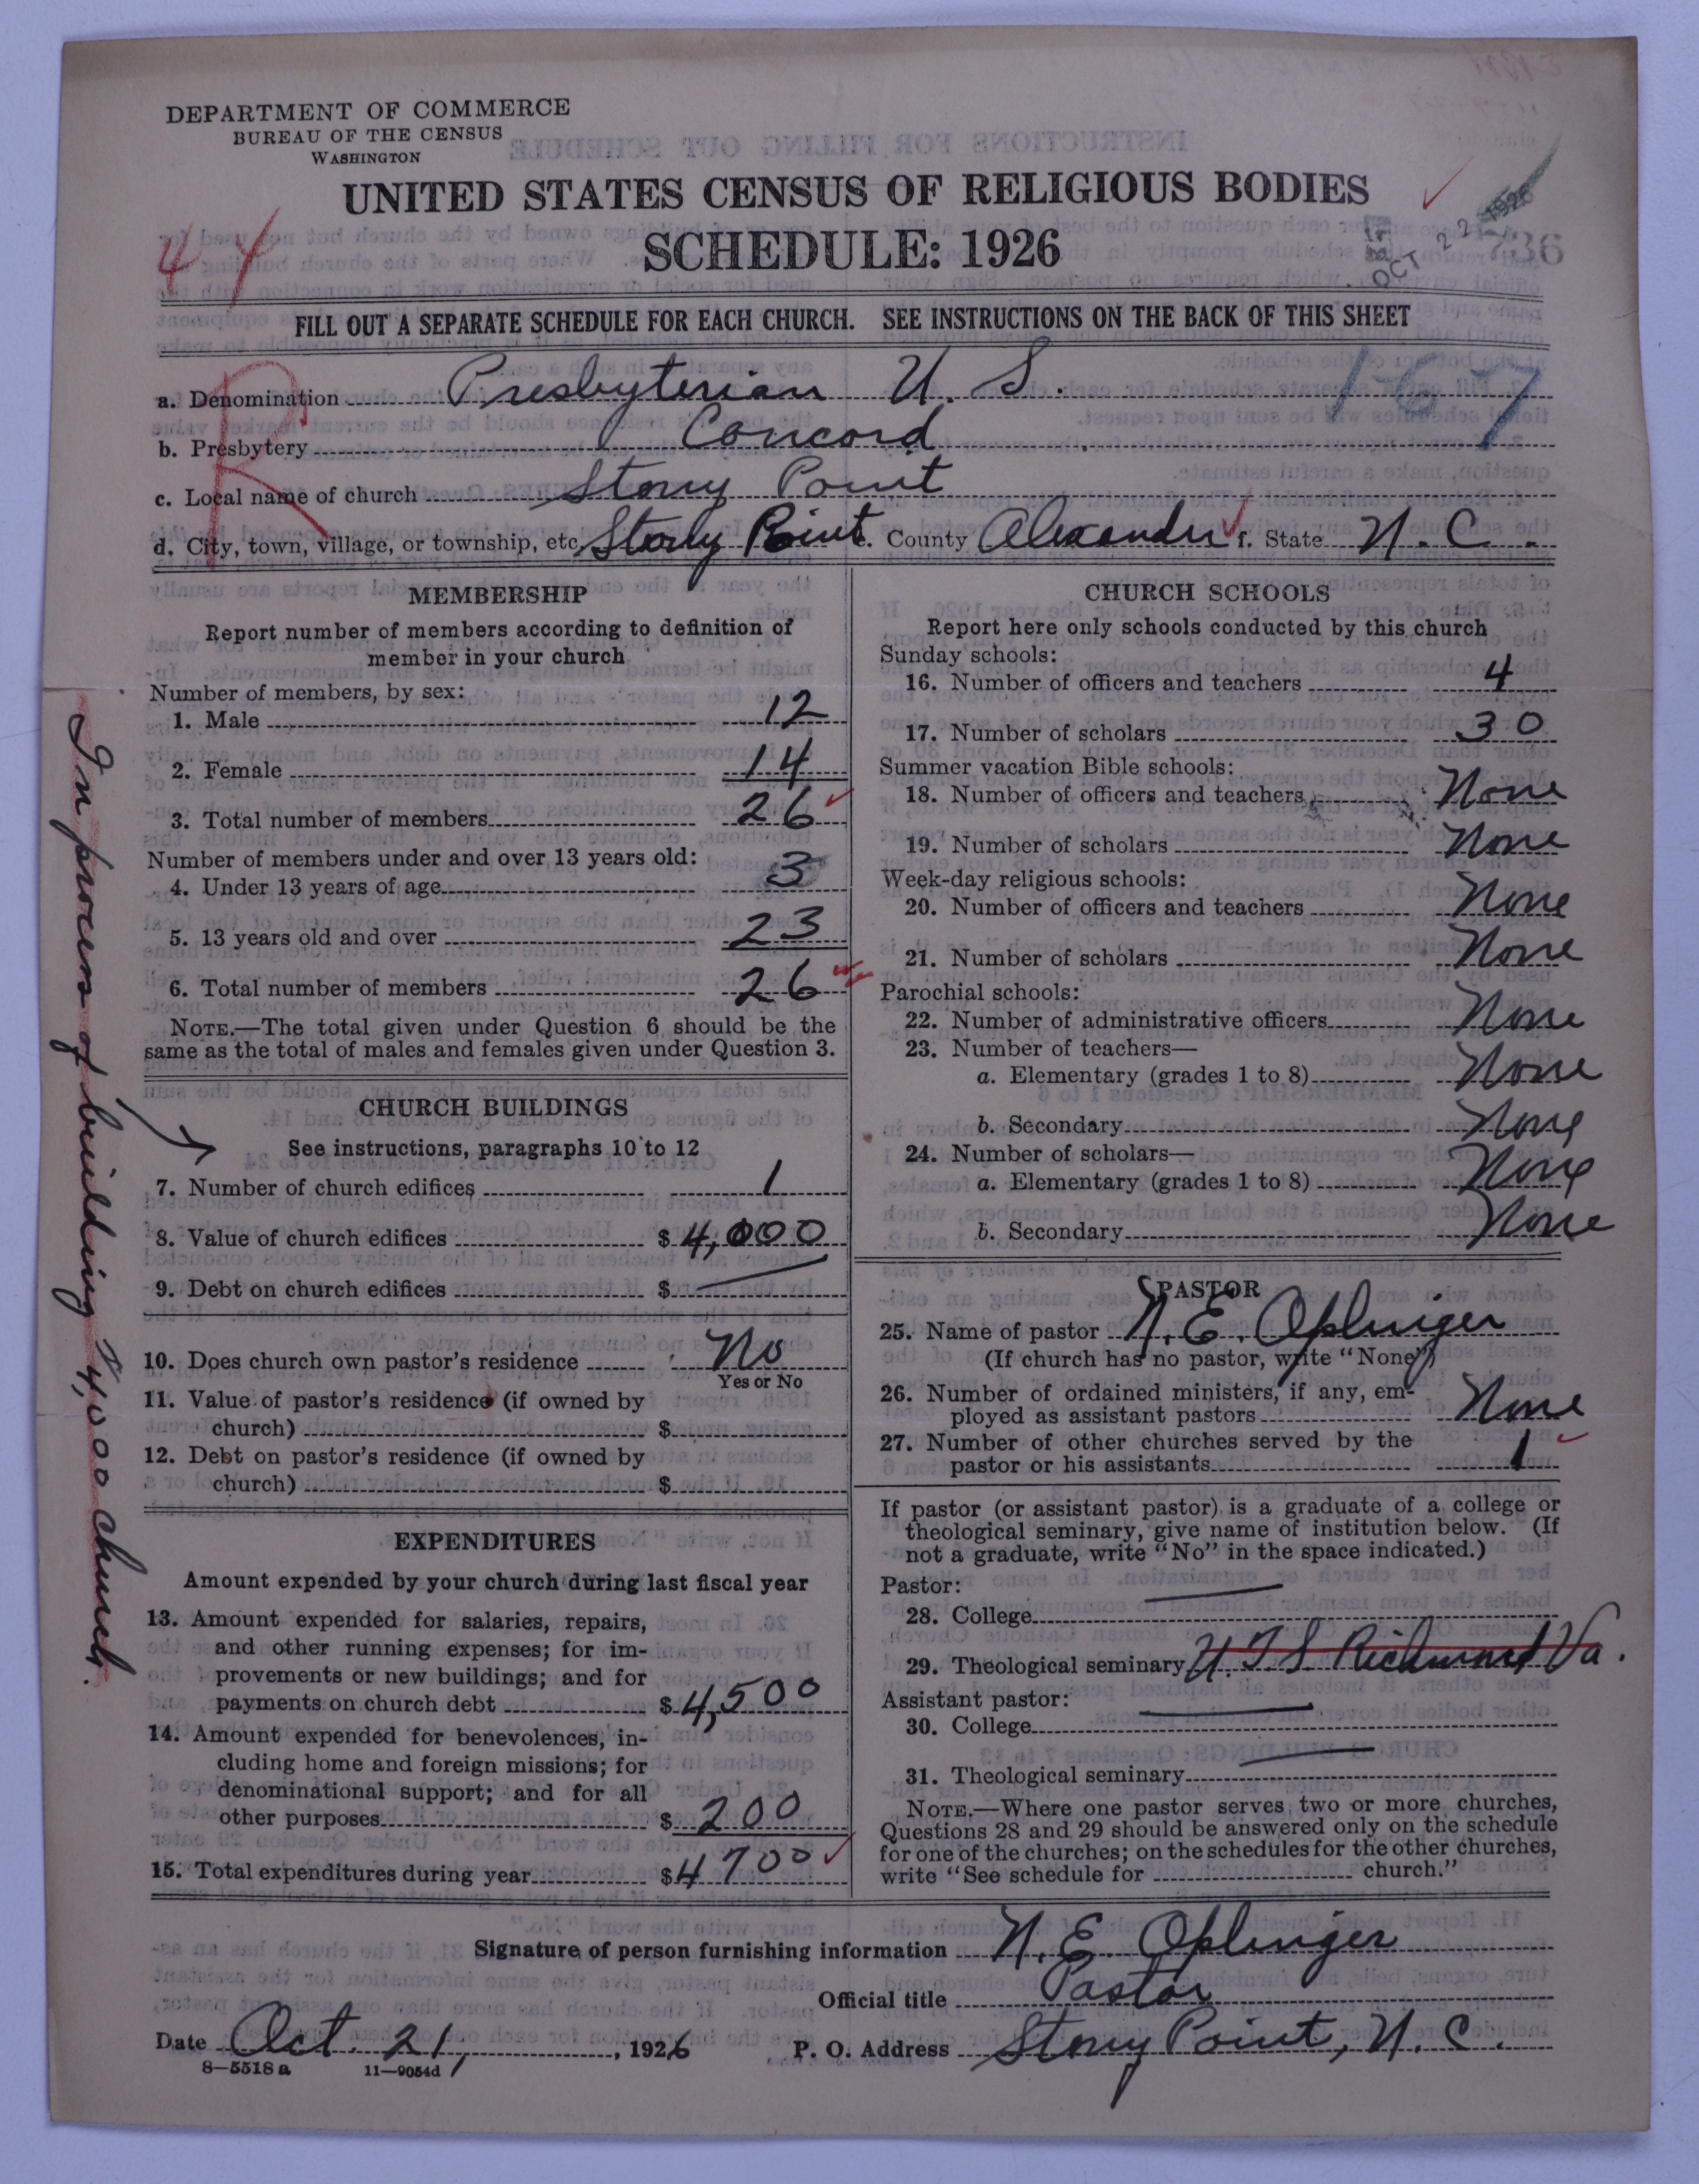 DEPARTMENT OF COMMERCE
BUREAU OF THE CENSUS
WASHINGTON
UNITED STATES CENSUS OF RELIGIOUS BODIES
SCHEDULE: 1926
44
OCT 22 1926
FILL OUT A SEPARATE SCHEDULE FOR EACH CHURCH. SEE INSTRUCTIONS ON THE BACK OF THIS SHEET
R
167
a. Denomination Presbyterian U. S.
b. Presbytery Concord
c. Local name of church Stony Point
d. City, town, village, or township, etc. Stony Point e. County Alexander f. State N. C.
MEMBERSHIP
Report number of members according to definition of
member in your church
Number of members, by sex:
1. Male 12
2. Female 14
3. Total number of members 26
Number of members under and over 13 years old:
4. Under 13 years of age 3
5. 13 years old and over 23
6. Total number of members 26
NOTE.—The total given under Question 6 should be the
same as the total of males and females given under Question 3.
CHURCH BUILDINGS
See instructions, paragraphs 10 to 12
7. Number of church edifices 1
8. Value of church edifices $ 4,000
9. Debt on church edifices $
10. Does church own pastor's residence No
Yes or No
11. Value of pastor's residence (if owned by
church) $
12. Debt on pastor's residence (if owned by
church) $
In process of building $4,000 church.
EXPENDITURES
Amount expended by your church during last fiscal year
13. Amount expended for salaries, repairs,
and other running expenses; for im-
provements or new buildings; and for
payments on church debt $ 4,500
14. Amount expended for benevolences, in-
cluding home and foreign missions; for
denominational support; and for all
other purposes $ 200
15. Total expenditures during year $ 4700
CHURCH SCHOOLS
Report here only schools conducted by this church
Sunday schools:
16. Number of officers and teachers 4
17. Number of scholars 30
Summer vacation Bible schools:
18. Number of officers and teachers None
19. Number of scholars None
Week-day religious schools:
20. Number of officers and teachers None
21. Number of scholars None
Parochial schools:
22. Number of administrative officers None
23. Number of teachers—
a. Elementary (grades 1 to 8) None
b. Secondary None
24. Number of scholars—
a. Elementary (grades 1 to 8) None
b. Secondary None
PASTOR
25. Name of pastor N. E. Oplinger
(If church has no pastor, write "None")
26. Number of ordained ministers, if any, em-
ployed as assistant pastors None
27. Number of other churches served by the
pastor or his assistants 1
If pastor (or assistant pastor) is a graduate of a college or
theological seminary, give name of institution below. (If
not a graduate, write "No" in the space indicated.)
Pastor:
28. College
29. Theological seminary U. T. S. Richmond Va.
Assistant pastor:
30. College
31. Theological seminary
NOTE.—Where one pastor serves two or more churches,
Questions 28 and 29 should be answered only on the schedule
for one of the churches; on the schedules for the other churches,
write "See schedule for church."
Signature of person furnishing information N. E. Oplinger
Official title Pastor
Date Oct. 21, 1926 P. O. Address Stony Point, N. C.
8—5518 a 11—9054d